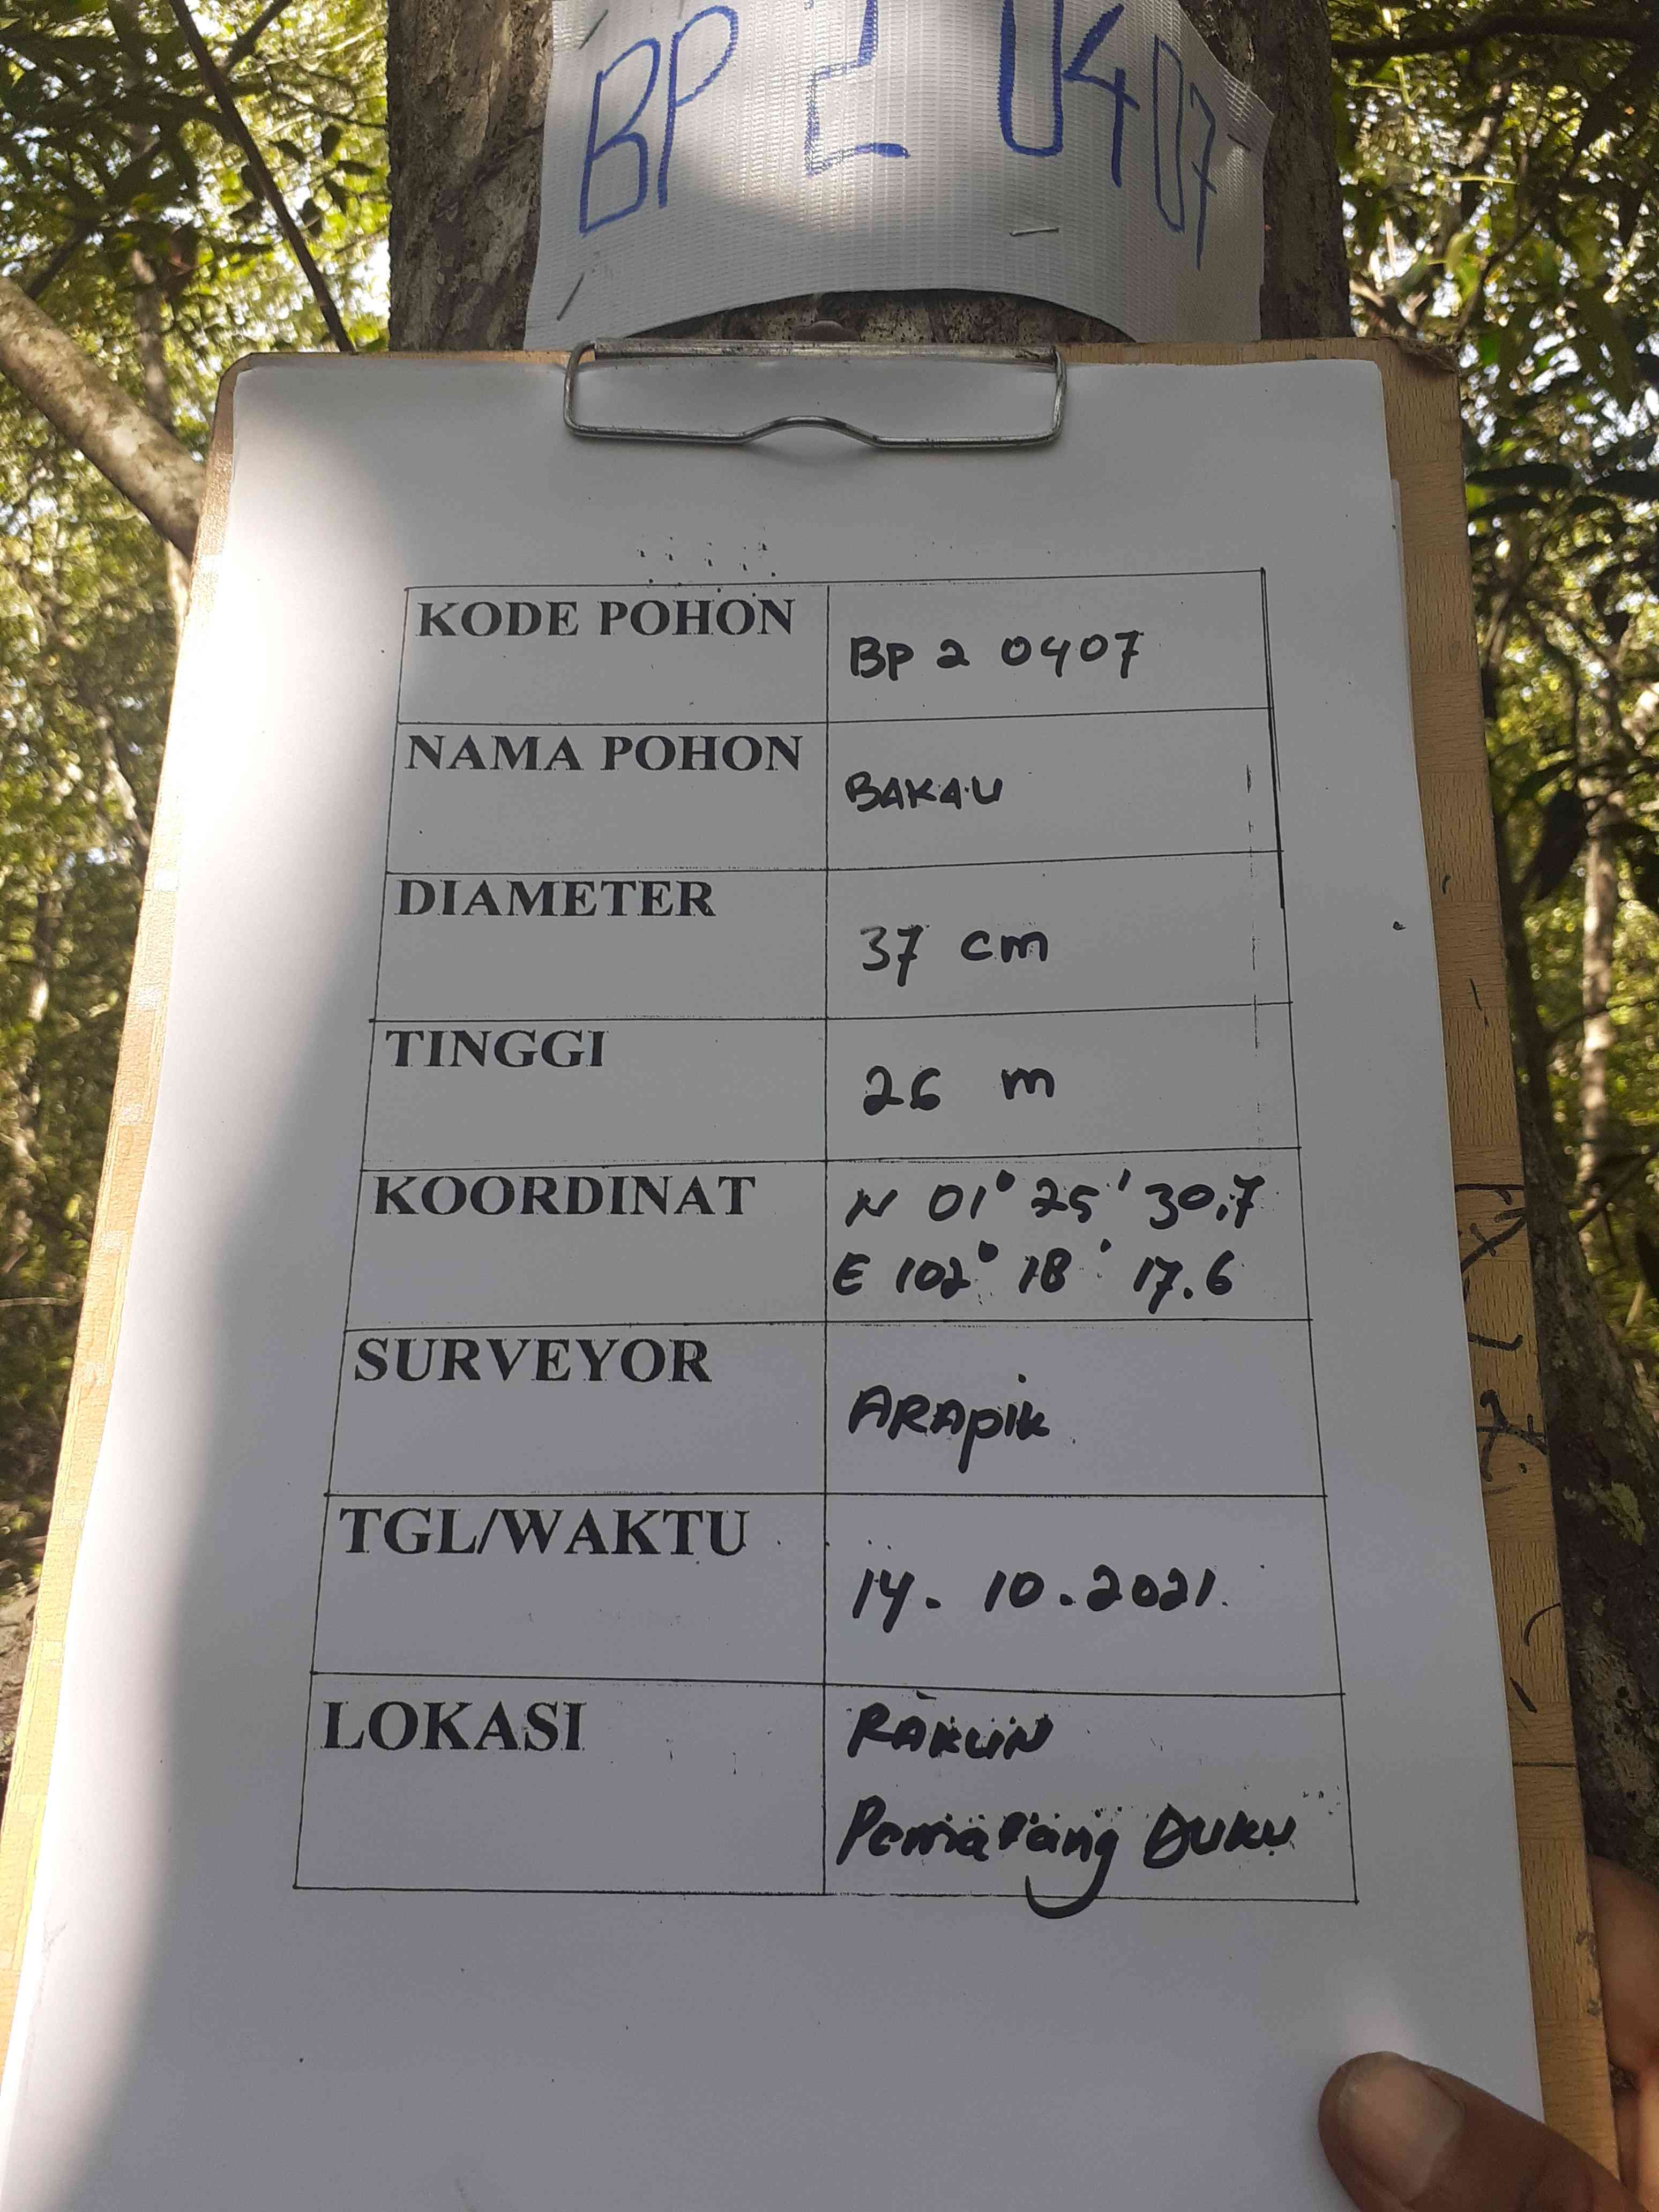 BP 2 0407
KODE POHON
BP 2 0407
NAMA POHON
BAKAU
DIAMETER
37 cm
TINGGI
26 m
KOORDINAT
N 01° 25' 30,7
E 102° 18' 17.6
SURVEYOR
ARApik
TGL/WAKTU
14. 10. 2021.
LOKASI
RAKUN
Pematang Duku